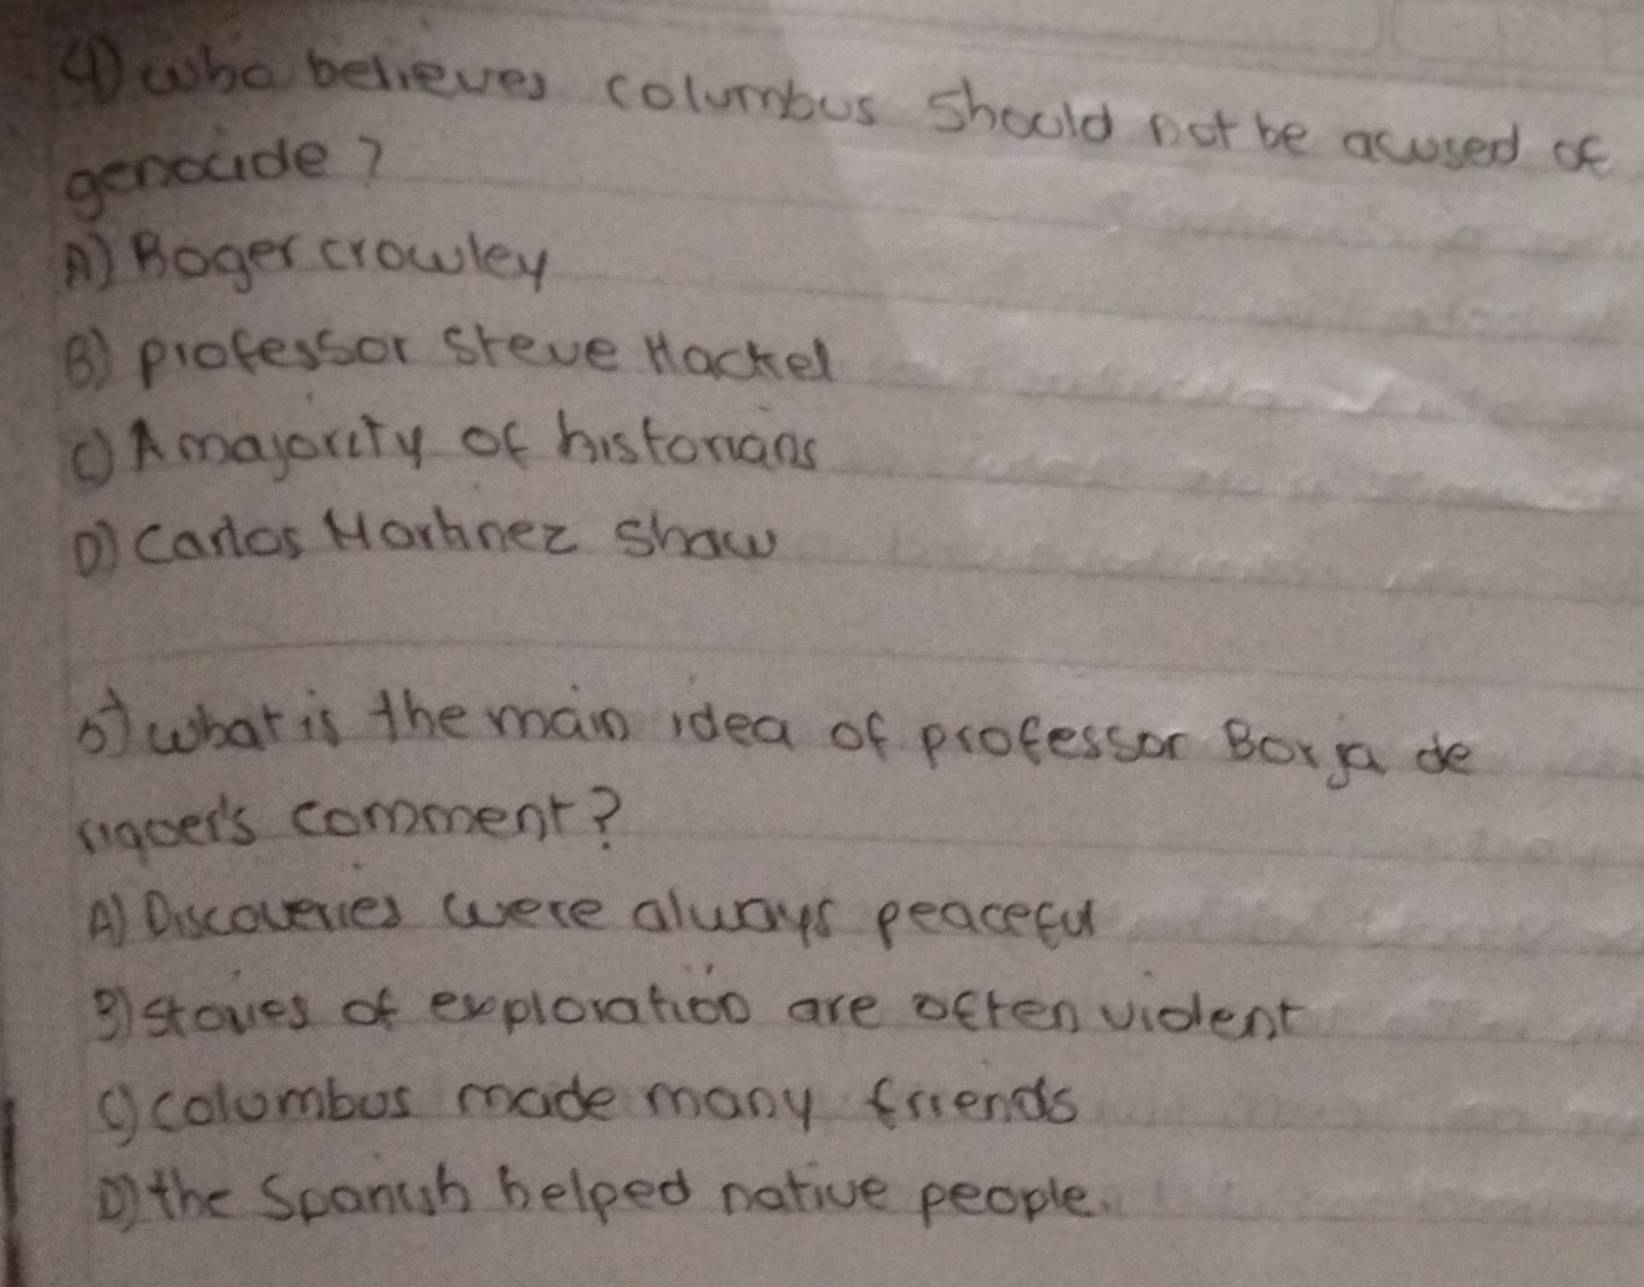 4) who believes columbus should not be acused of
genocide?
A) Roger crowley
B) professor Steve Hackel
C) A majority of historians
D) Carlos Martinez Shaw
5) what is the main idea of professor Borja de
riquer's comment?
A) Discoveries were always peaceful
B) stories of exploration are often violent
C) columbus made many friends
D) the Spanish helped native people.